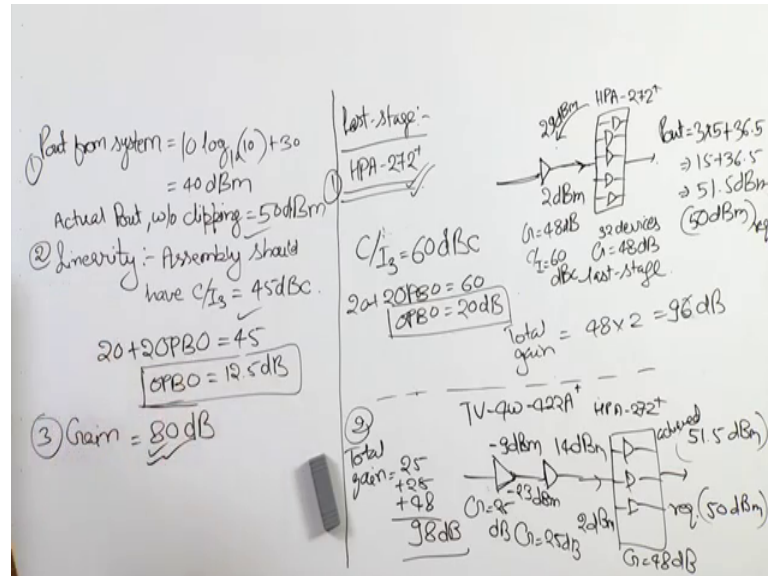 ① Pout from system = 10 log₁₀(10) + 30
= 40 dBm
Actual Pout, w/o clipping = 50 dBm
② Linearity :- Assembly should
have C/I₃ = 45 dBc.
20 + 2OPBO = 45
OPBO = 12.5 dB
③ Gain = 80 dB
Last-stage :-
① HPA-272⁺
C/I₃ = 60 dBc
20 + 2OPBO = 60
OPBO = 20 dB
HPA-272⁺
29 dBm
2 dBm
G = 48 dB
C/I = 60
dBc
32 devices
G = 48 dB
last-stage.
Pout = 3x5 + 36.5
⇒ 15 + 36.5
⇒ 51.5 dBm
(50 dBm) req
Total gain = 48 x 2 = 96 dB
②
Total
gain = 25
+ 25
+ 48
98 dB
TV-4W-422A⁺
HPA-272⁺
-9 dBm
14 dBm
-23 dBm
2 dBm
G = 25
dB
G = 25 dB
G = 48 dB
achieved
51.5 dBm)
req. (50 dBm)